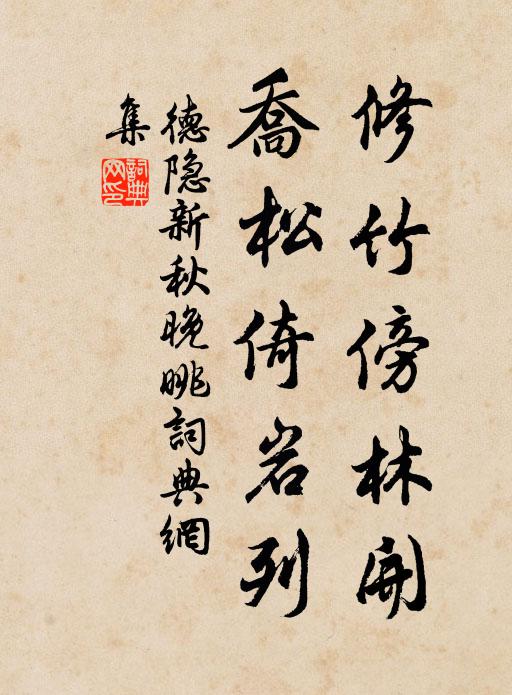 修竹傍林開
喬松倚岩列
德隐新秋晚眺詞典網
集
詞典网印